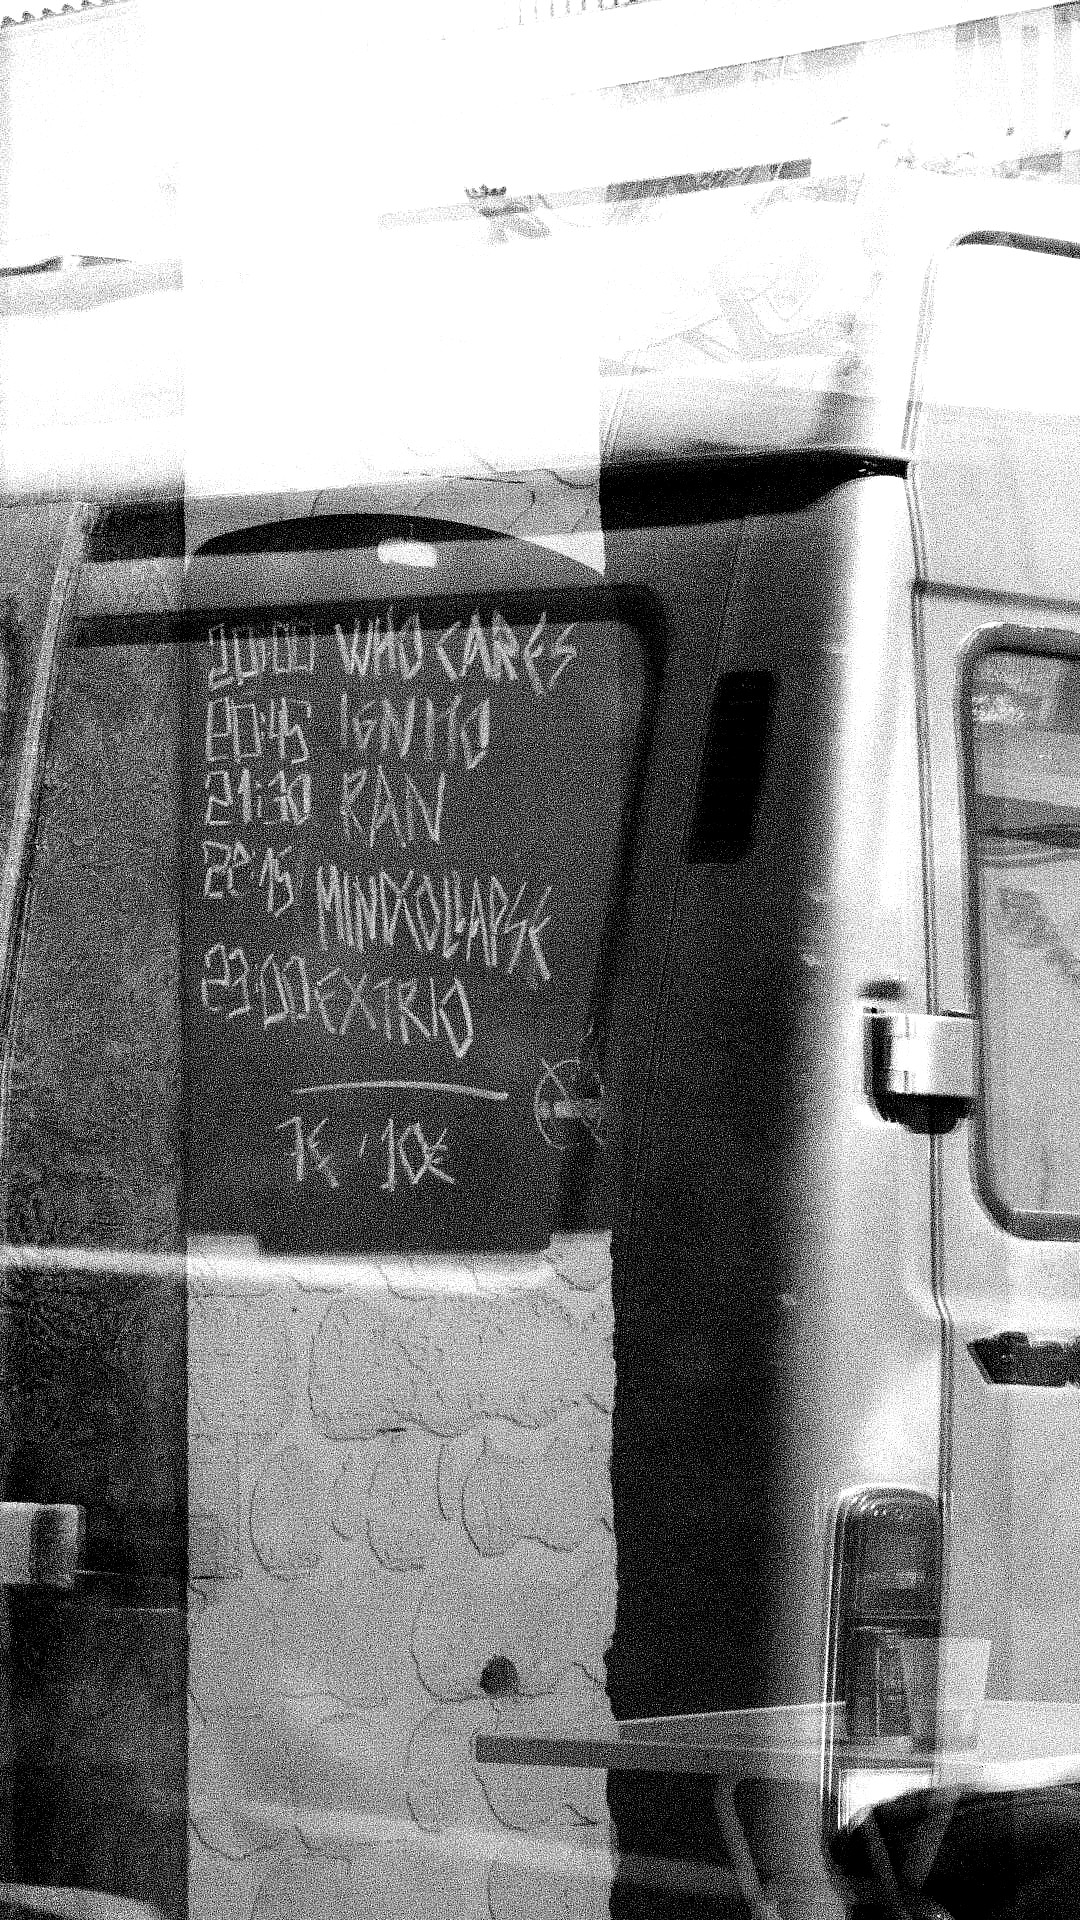 20:00 WHO CARES
20:45 IGNITO
21:30 RAN
22:15 MINDCOLLAPSE
23:00 EXTRIO
7€ 10€